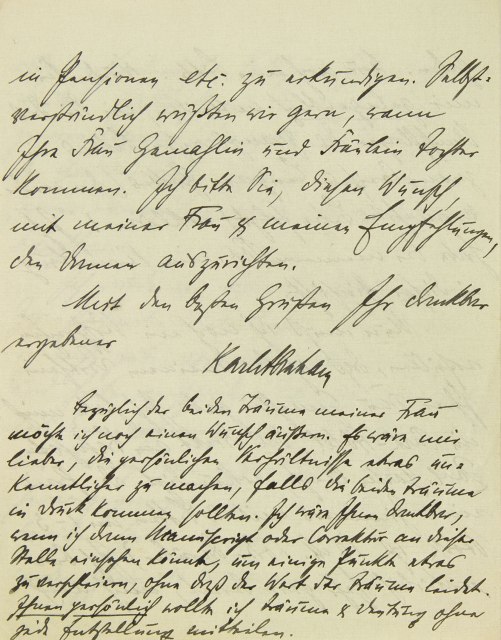 in Pensionen etc. zu erkundigen. Selbst-
verständlich wüßten wir gern, wann
Ihre Frau Gemahlin und Fräulein Tochter
kommen. Ich bitte Sie, diesen Wunsch,
mit meiner Frau & meinen Empfehlungen,
den Damen auszurichten.
Mit den besten Grüßen Ihr dankbar
ergebener
Karl Abraham
Bezüglich der beiden Träume meiner Frau
möchte ich noch einen Wunsch äußern. Es wäre mir
lieber, die persönlichen Verhältnisse etwas un-
kenntlicher zu machen, falls die beiden Träume
in Druck kommen sollten. Ich wäre Ihnen dankbar,
wenn ich dann Manuscript oder Correktur an dieser
Stelle einsehen könnte, um einige Punkte etwas
zu verschleiern, ohne daß der Wert der Träume leidet.
Ihnen persönlich wollte ich Träume & Deutung ohne
jede Entstellung mitteilen.